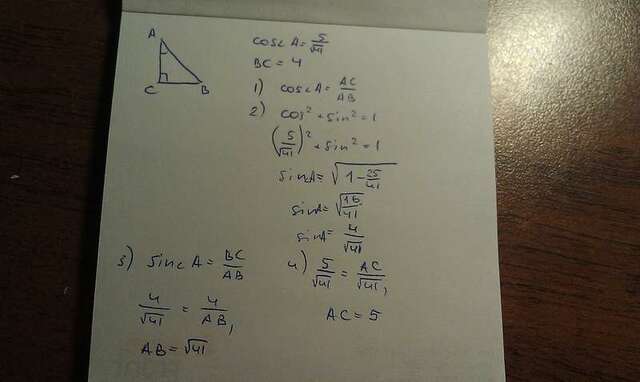 A
C
B
cos∠A = 5/√41
BC = 4
1) cos∠A = AC/AB
2) cos² + sin² = 1
(5/√41)² + sin² = 1
sin∠A = √(1 - 25/41)
sin∠A = √(16/41)
sin∠A = 4/√41
3) sin∠A = BC/AB
4/√41 = 4/AB,
AB = √41
4) 5/√41 = AC/√41,
AC = 5